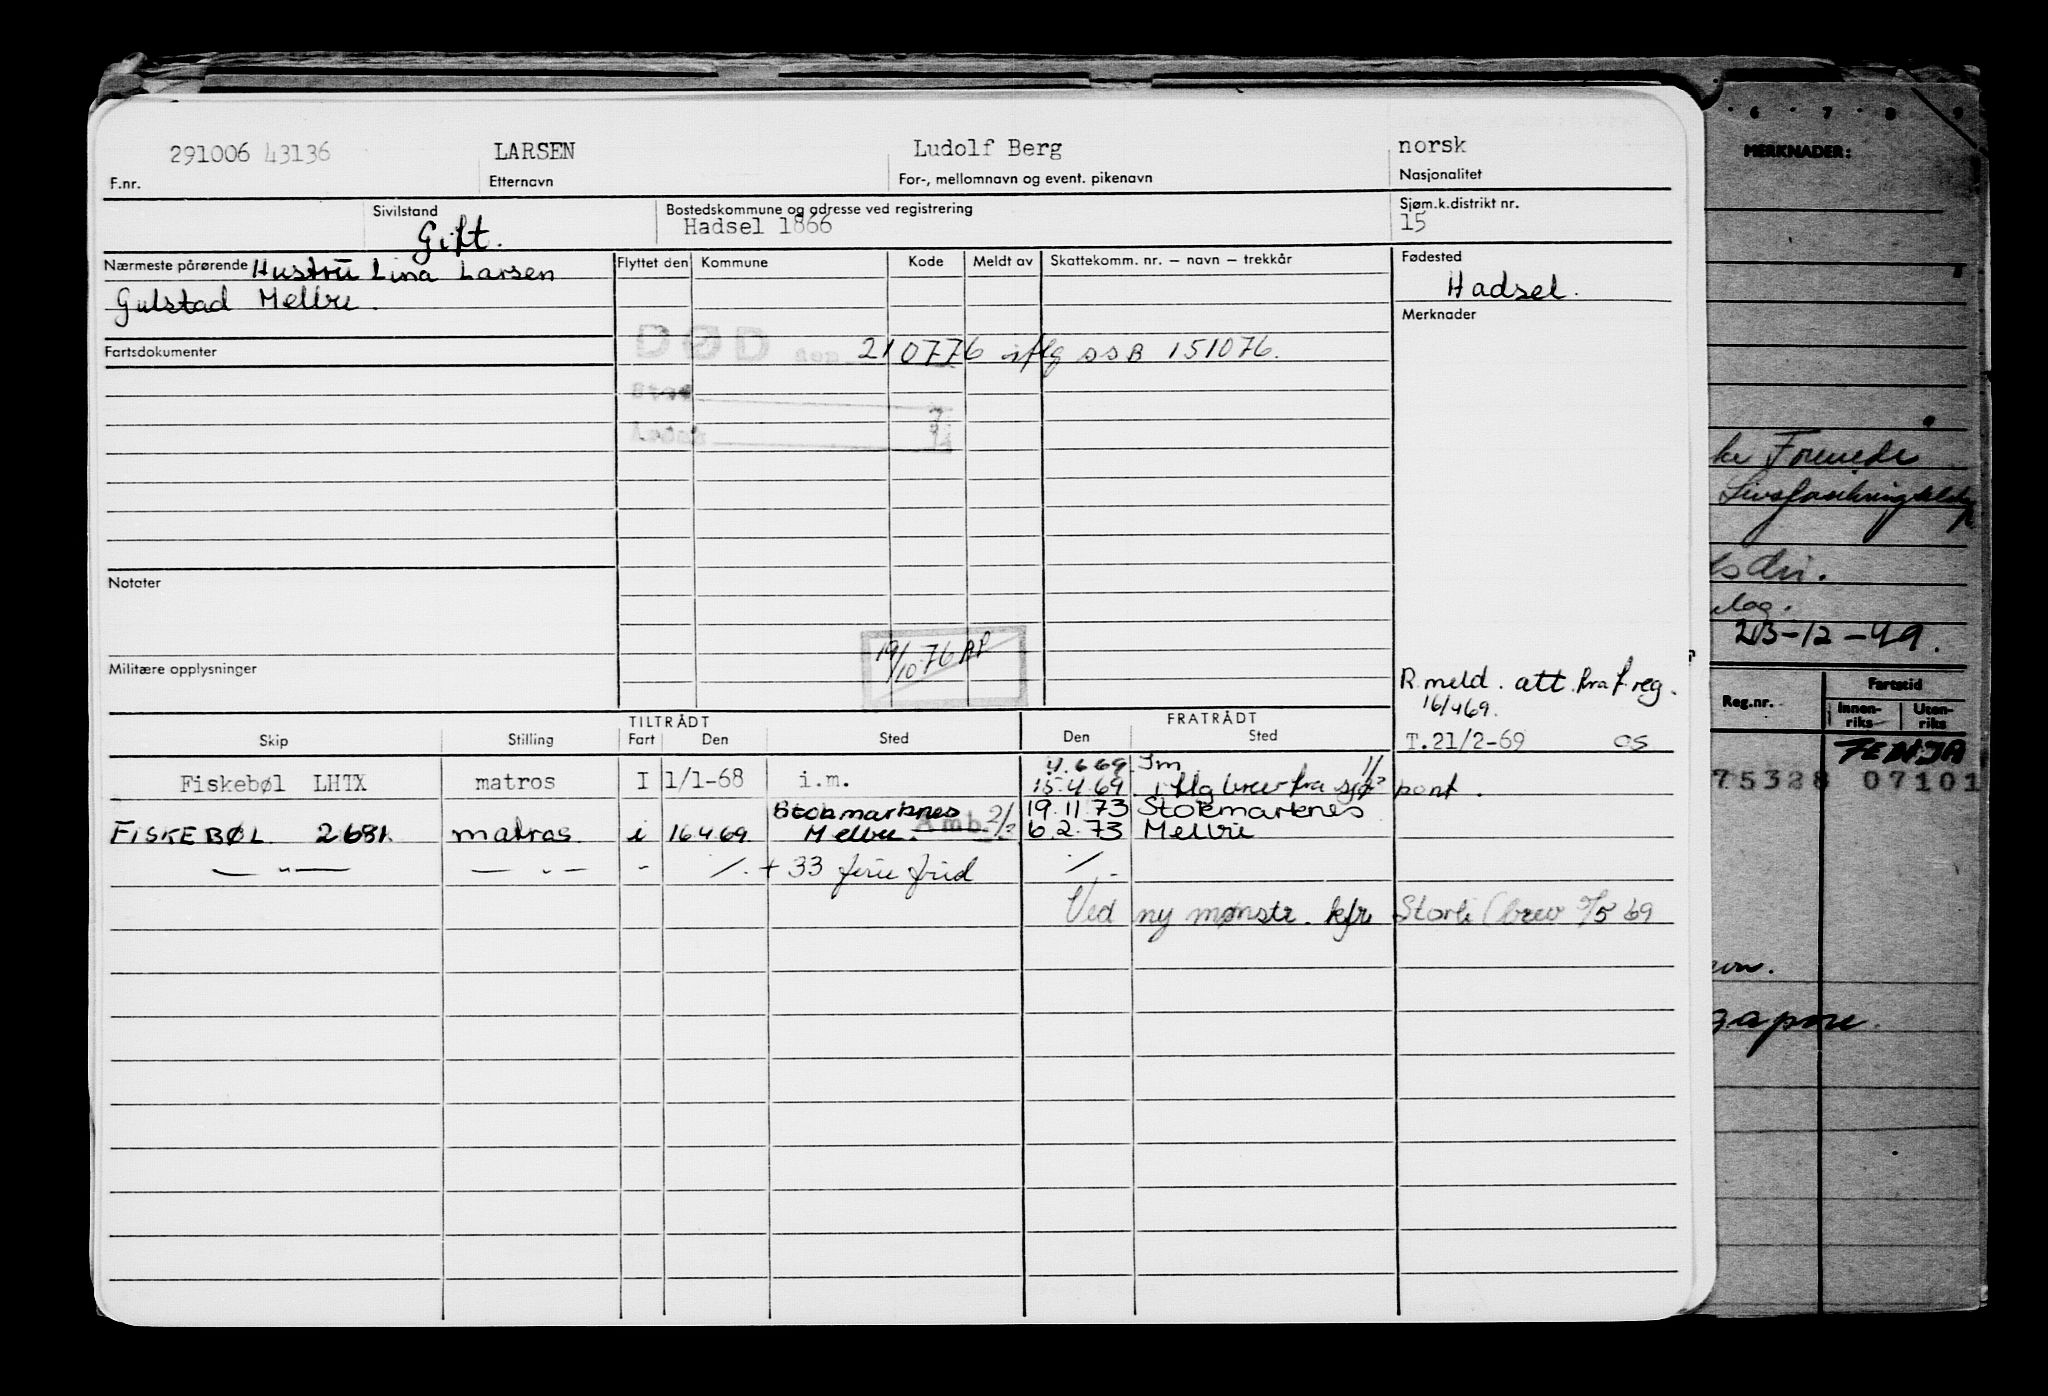 291006 43136 LARSEN Ludolf Berg norsk
F.nr. Etternavn For-, mellomnavn og event. pikenavn Nasjonalitet
Sivilstand Bostedskommune og adresse ved registrering Sjøm.k.distrikt nr.
Gift. Hadsel 1866 15
Nærmeste pårørende Hustru Lina Larsen Flyttet den Kommune Kode Meldt av Skattekomm. nr. – navn – trekkår Fødested
Gulstad Melbu. Hadsel.
Merknader
Fartsdokumenter DØD 210776 iflg SSB 151076.
Sted
Notater
19/10-76 AP
Militære opplysninger
R.meld. att. fra f.reg.
16/469.
TILTRÅDT FRATRÅDT
Skip Stilling Fart Den Sted Den Sted T.21/2-69 OS
4.669 Im
Fiskebøl LHTX matros I 1/1-68 i.m. 15.4.69. iflg brev fra
Stokmarknes 19.11.73 Stokmarknes
FISKEBØL 2681. matros. i 16469. Melbu. Amb. 6.2.73 Melbu
— " — — " — - ./. + 33 ferie frid ./.
Ved ny mønstr. kfr Storli (brev 9/5 69
6 7 8 9
MERKNADER:
23-12-49.
Reg.nr. Fartstid
Innen-riks Uten-riks
FENJA
75328 07101